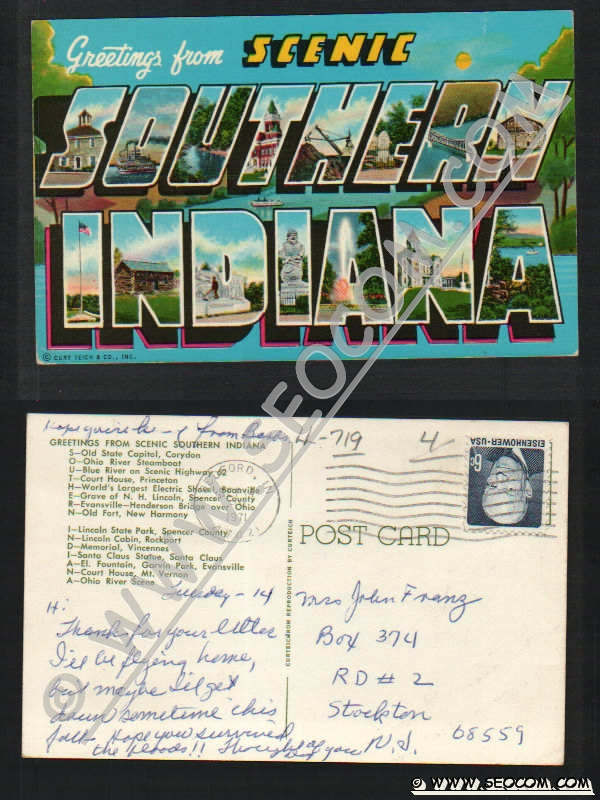 Greetings from SCENIC
SOUTHERN
INDIANA
© CURT TEICH & CO., INC.
© WWW.SEOCOM.COM
Hope you're from
GREETINGS FROM SCENIC SOUTHERN INDIANA
S—Old State Capitol, Corydon
O—Ohio River Steamboat
U—Blue River on Scenic Highway 62
T—Court House, Princeton
H—World's Largest Electric Shovel, Boonville
E—Grave of N. H. Lincoln, Spencer County
R—Evansville-Henderson Bridge over Ohio
N—Old Fort, New Harmony
I—Lincoln State Park, Spencer County
N—Lincoln Cabin, Rockport
D—Memorial, Vincennes
I—Santa Claus Statue, Santa Claus
A—El. Fountain, Garvin Park, Evansville
N—Court House, Mt. Vernon
A—Ohio River Scene
4-719 4
EISENHOWER·USA
6c
POST CARD
CURTEICHCOLOR REPRODUCTION BY CURTEICH
Tuesday - 14
Hi
Thanks for your letter
I'll be flying home,
but maybe I'll get
down sometime this
fall. Hope you survived
the floods!! Thought of you
Mrs John Franz
Box 374
RD # 2
Stockton
N.J. 08559
© WWW.SEOCOM.COM